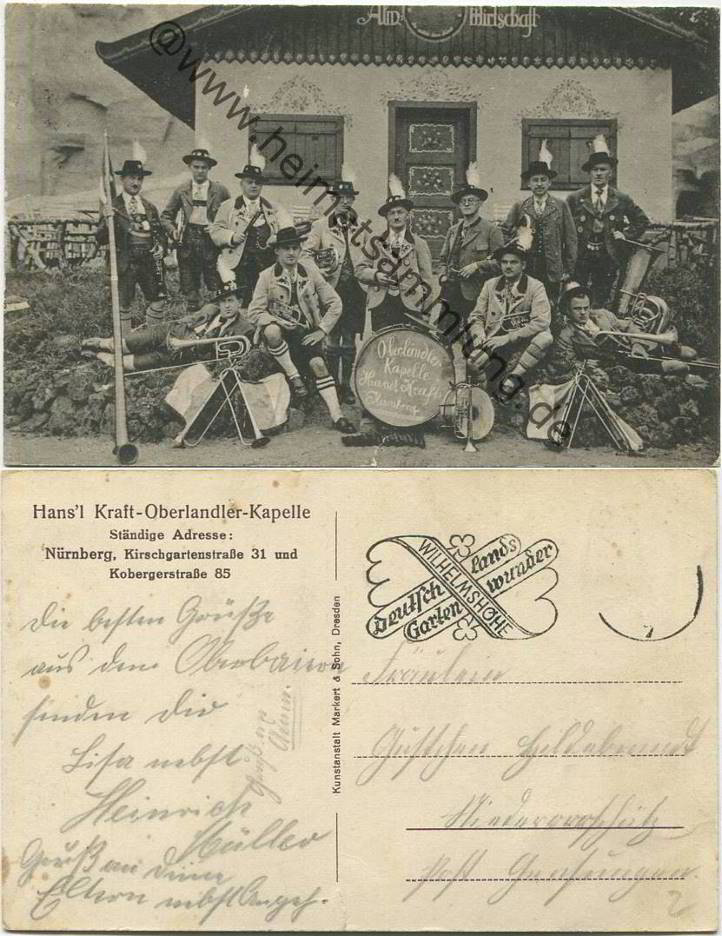 Alm- Wirtschaft
@www.heimatsammlung.de
Oberlandler
Kapelle
Hansl Kraft
Nürnberg
Hans'l Kraft-Oberlandler-Kapelle
Ständige Adresse:
Nürnberg, Kirschgartenstraße 31 und
Kobergerstraße 85
Die besten Grüße
aus dem
senden Dir
Lisa nebst
Heinrich
Müller
Gruß an deine
Eltern nebst Angeh.
Kunstanstalt Markert & Sohn, Dresden
deutschlands
WILHELMSHÖHE
Gartenwunder
Fräulein
Hildebrandt
Post